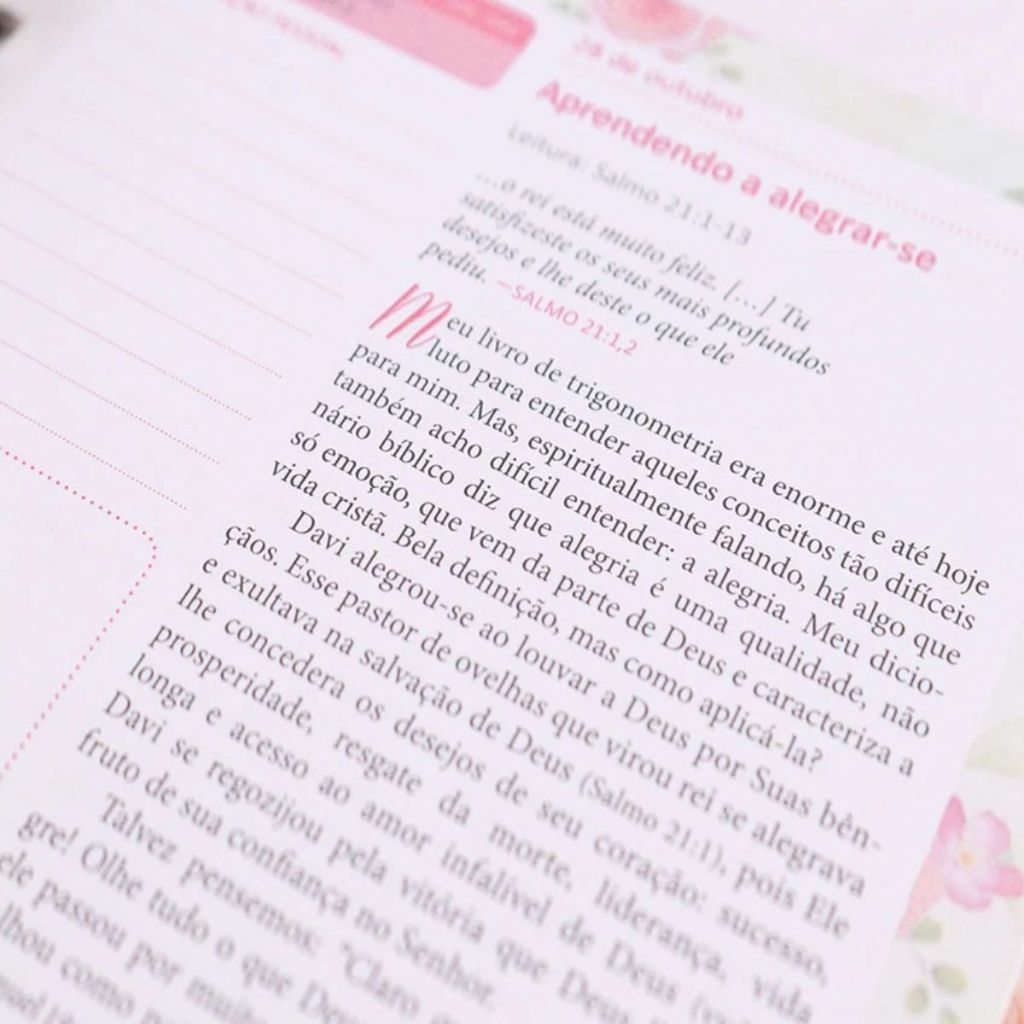 de outubro
Aprendendo a alegrar-se
Leitura: Salmo 21:1-13
...o rei está muito feliz. [...] Tu
satisfizeste os seus mais profundos
desejos e lhe deste o que ele
pediu. —SALMO 21:1,2
Meu livro de trigonometria era enorme e até hoje
luto para entender aqueles conceitos tão difíceis
para mim. Mas, espiritualmente falando, há algo que
também acho difícil entender: a alegria. Meu dicio-
nário bíblico diz que alegria é uma qualidade, não
só emoção, que vem da parte de Deus e caracteriza a
vida cristã. Bela definição, mas como aplicá-la?
Davi alegrou-se ao louvar a Deus por Suas bên-
çãos. Esse pastor de ovelhas que virou rei se alegrava
e exultava na salvação de Deus (Salmo 21:1), pois Ele
lhe concedera os desejos de seu coração: sucesso,
prosperidade, resgate da morte, liderança, vida
longa e acesso ao amor infalível de Deus
Davi se regozijou pela vitória que Deus
fruto de sua confiança no Senhor.
Talvez pensemos: "Claro
gre! Olhe tudo o que
ele passou por
lhou como